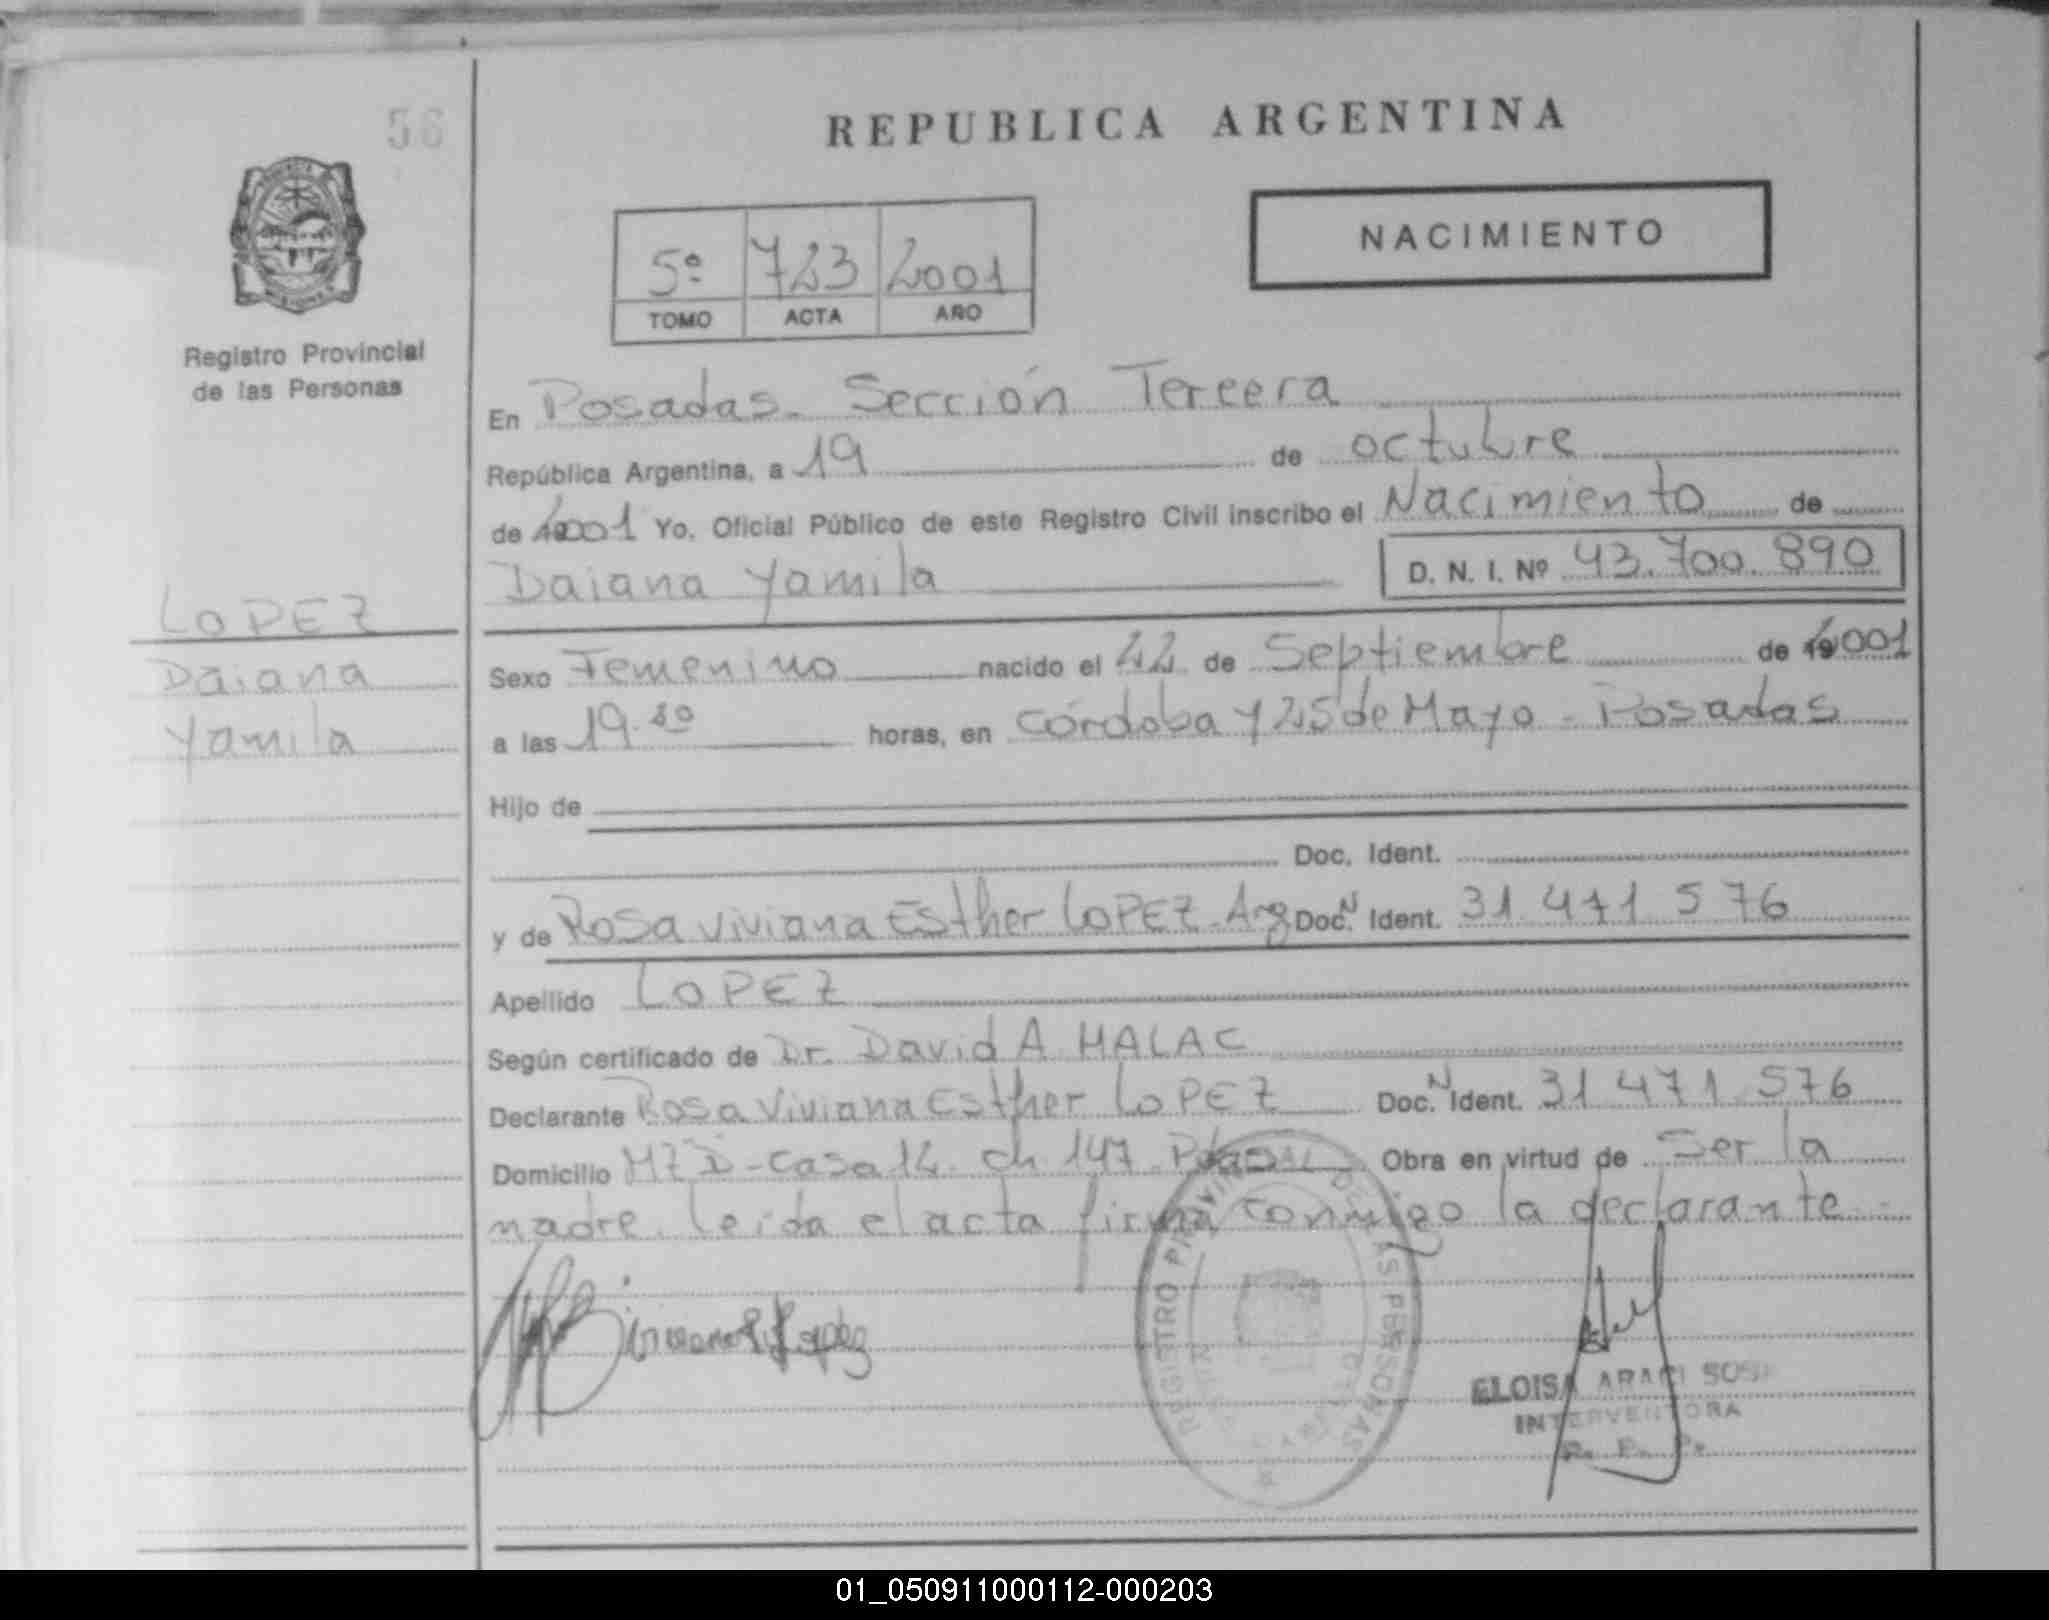 56
REPUBLICA ARGENTINA
NACIMIENTO
5º 723 2001
TOMO ACTA AÑO
Registro Provincial
de las Personas
En Posadas. Sección Tercera
República Argentina, a 19 de octubre
de 2001 Yo, Oficial Público de este Registro Civil inscribo el Nacimiento de
Daiana Yamila D. N. I. Nº 43.700.890
LOPEZ
Daiana
Yamila
Sexo Femenino nacido el 22 de Septiembre de 2001
a las 19. horas, en Córdoba y 25 de Mayo - Posadas
Hijo de
Doc. Ident.
y de Rosa Viviana Esther LOPEZ. Arg Doc. N Ident. 31 471 576
Apellido LOPEZ
Según certificado de Dr. David A MALAC
Declarante Rosa Viviana Esther LOPEZ Doc. N Ident. 31 471.576
Domicilio MZ D - Casa 14. ch 147. Pdas Obra en virtud de Ser la
madre. leida el acta firma conmigo la declarante.-
REGISTRO PROVINCIAL DE LAS PERSONAS
ELOISA ARACI SOSA
INTERVENTORA
R. P. P.
01_050911000112-000203